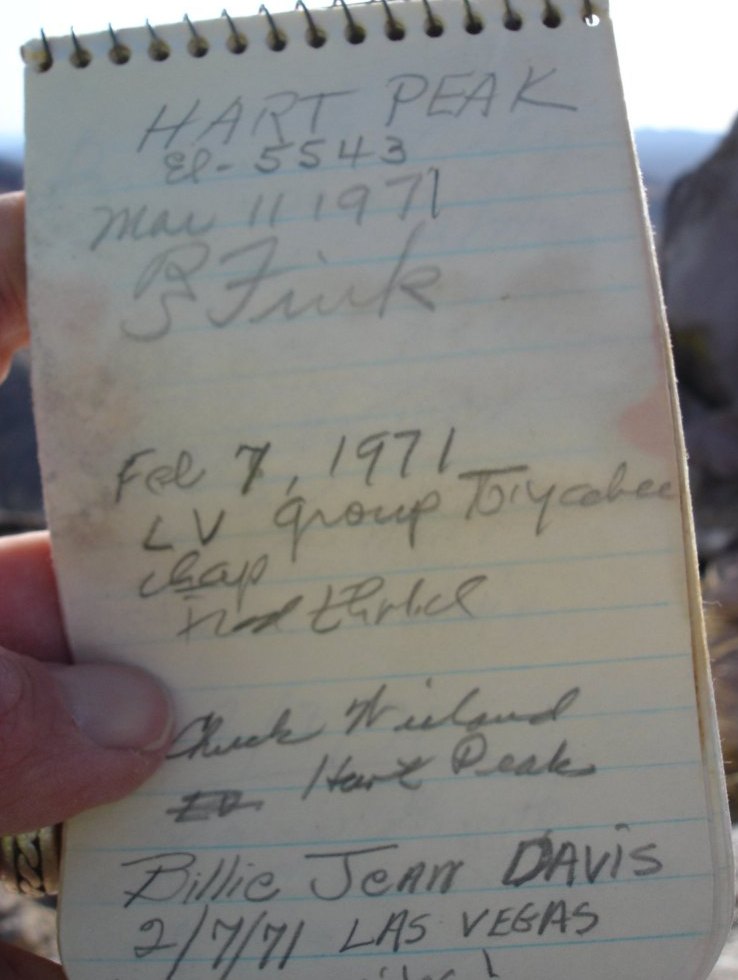 HART PEAK
El - 5543
Mar 11 1971
Fink
Feb 7, 1971
LV group Toiyabee
chap
Chuck Wieland
Hart Peak
Billie Jean DAVIS
2/7/71 LAS VEGAS